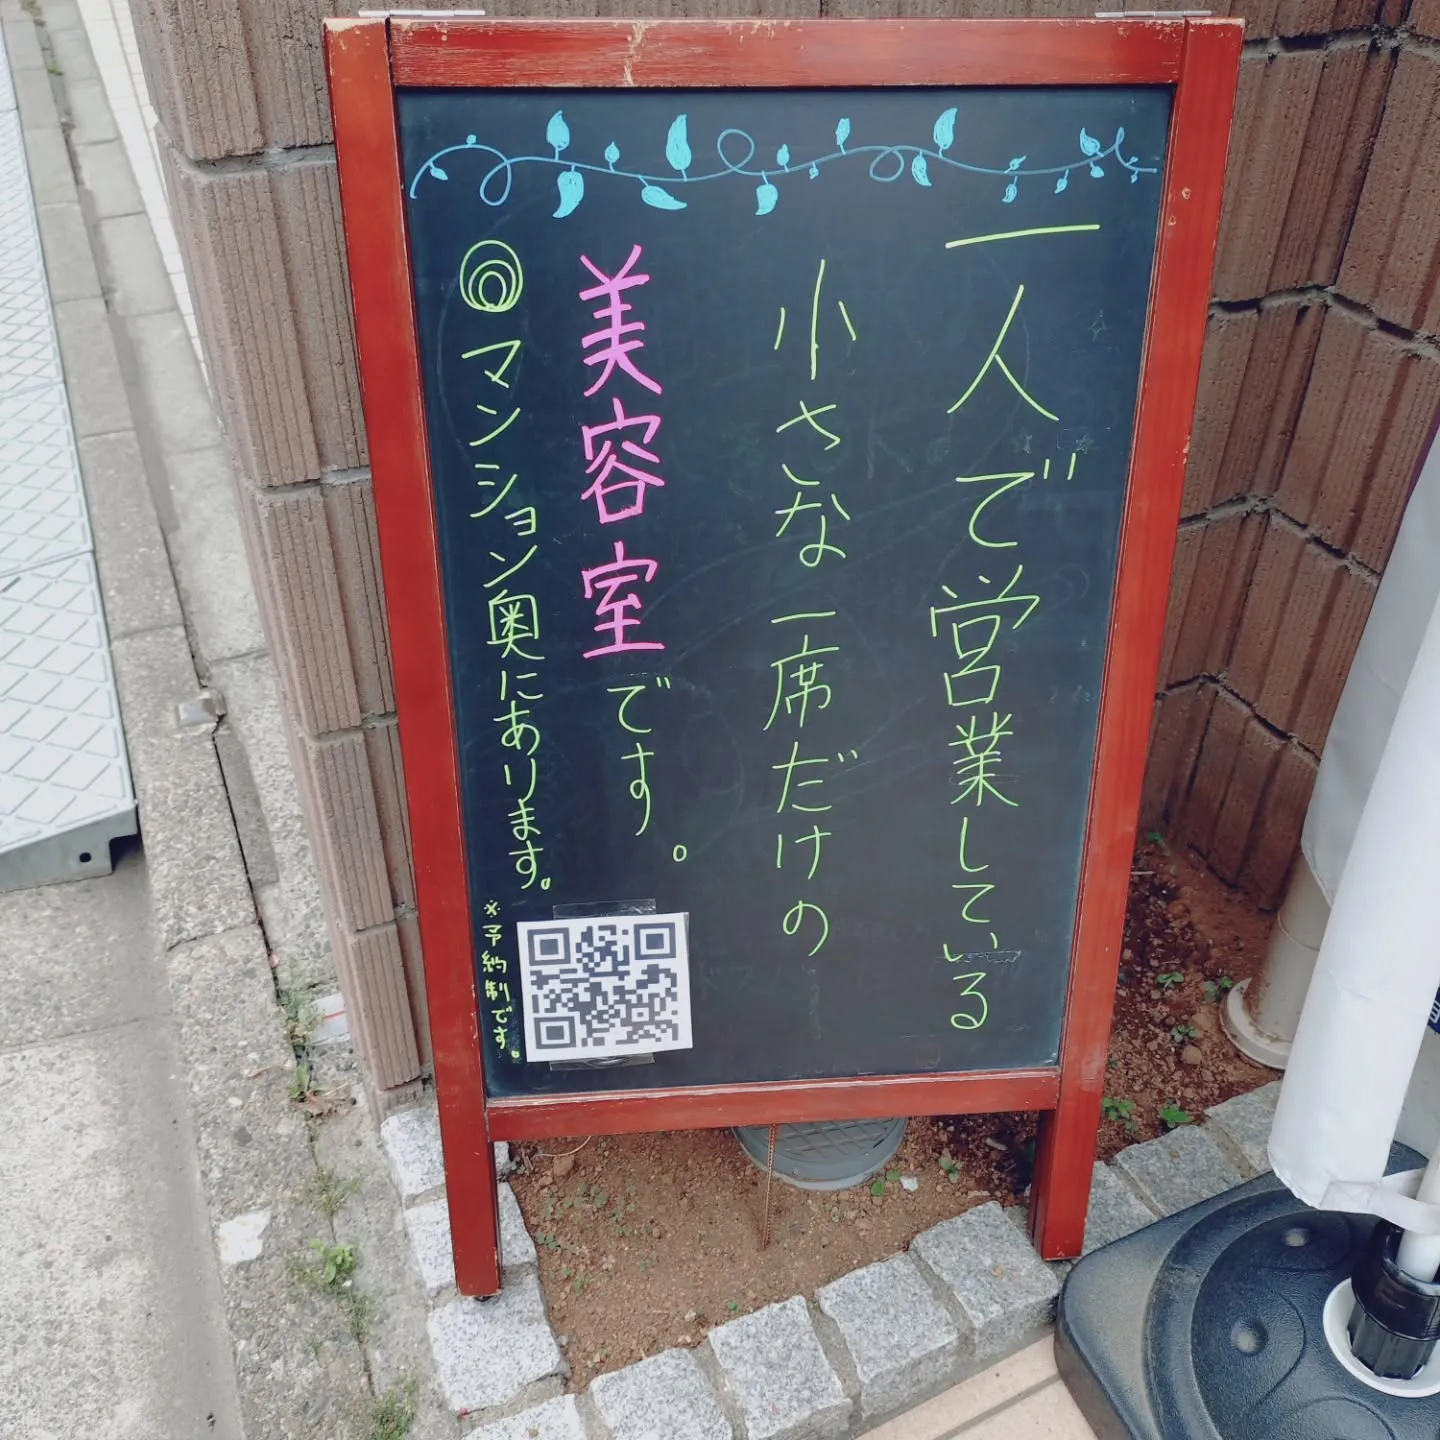 一人で営業している
小さな一席だけの
美容室です。
◎マンション奥にあります。
※予約制です。